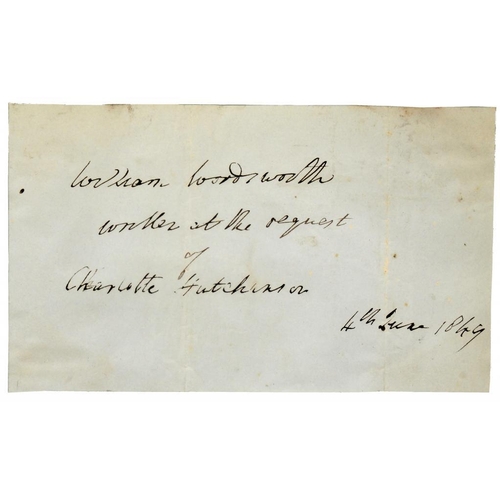 William Wordsworth
written at the request
of
Charlotte Hutchinson
4th June 1849